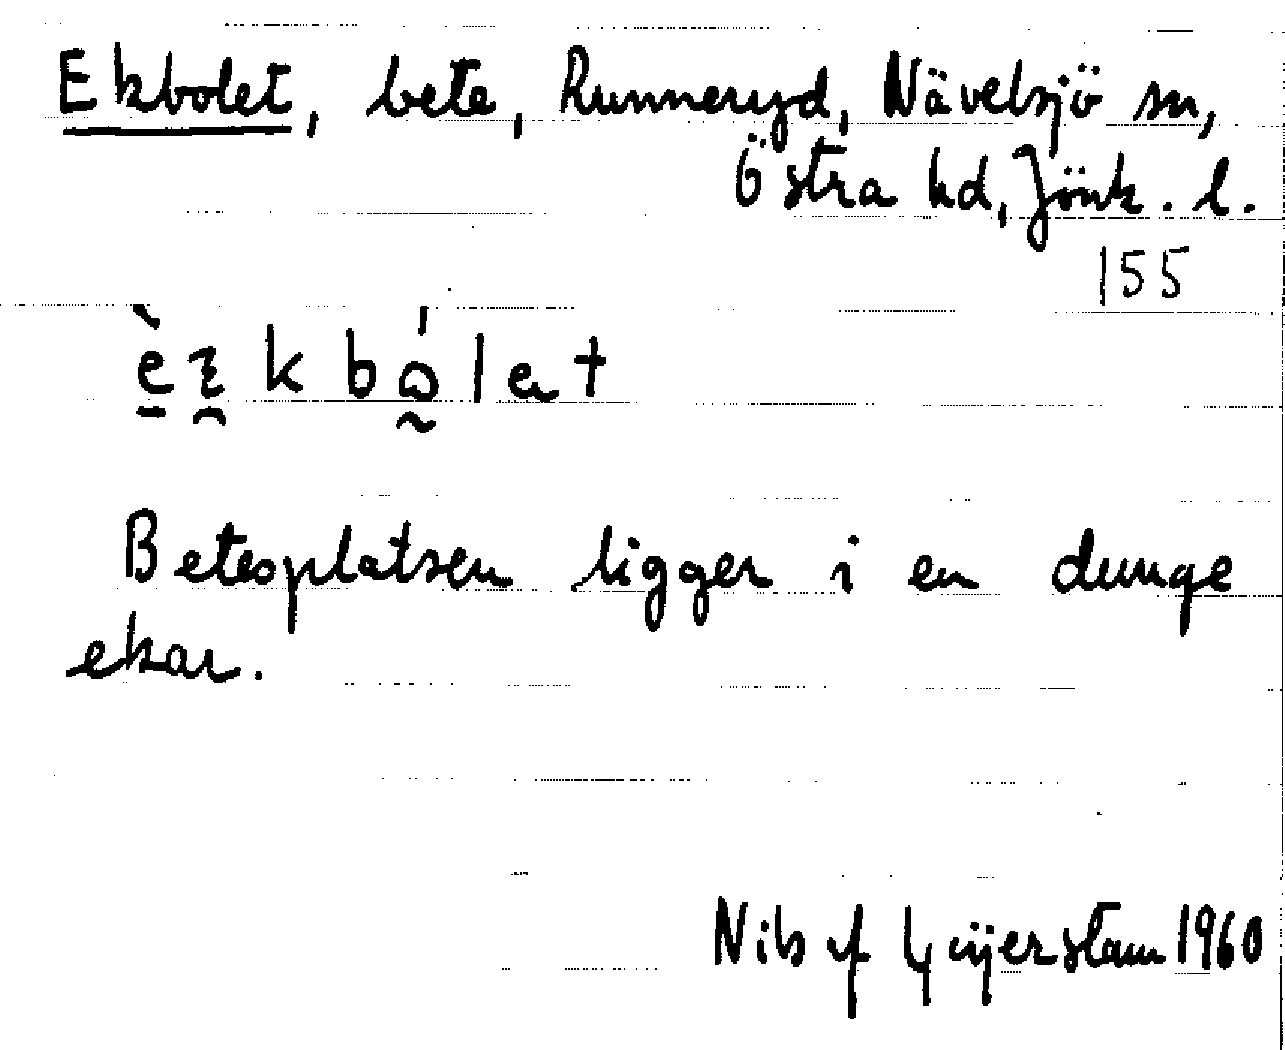 Ekbolet, bete, Runneryd, Nävelsjö sn,
Östra hd, Jönk. l.
155
Betesplatsen ligger i en dunge
ekar.
Nils af Geijerstam 1960